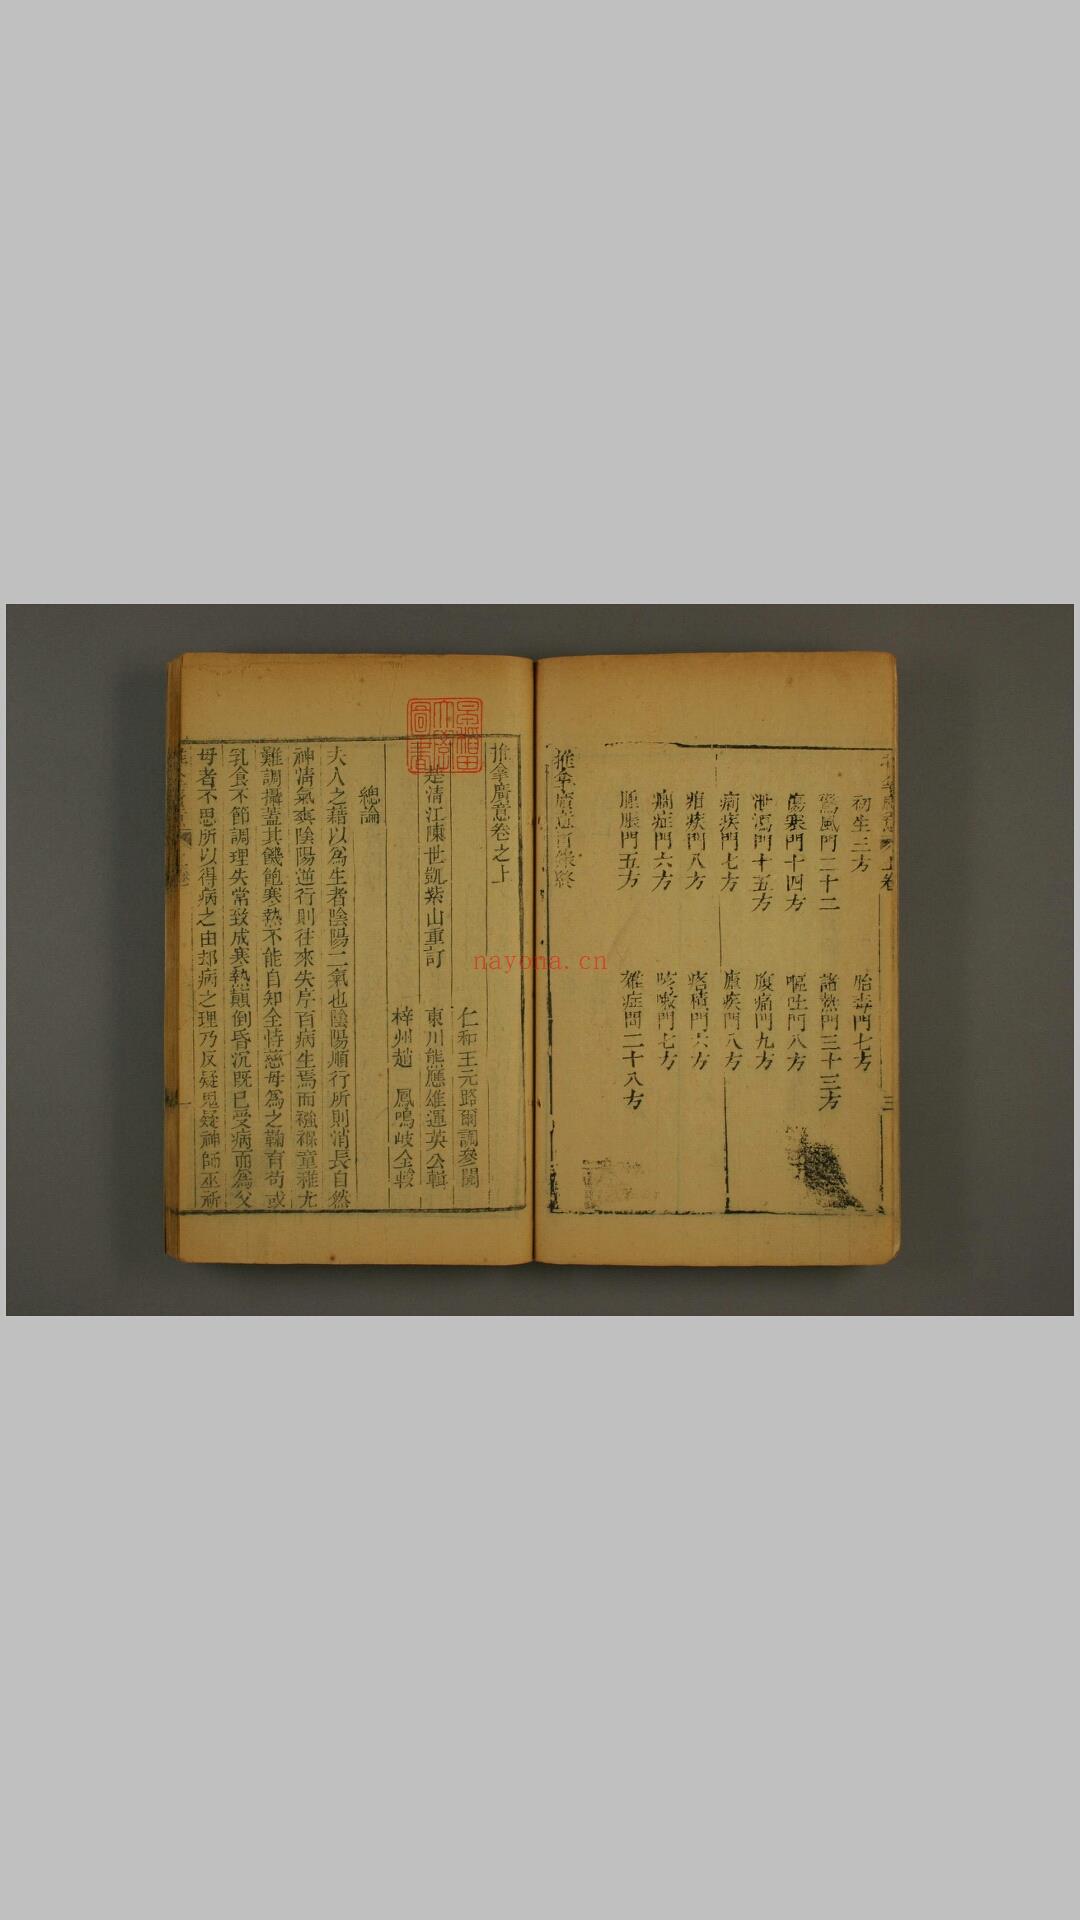 初生三方
胎毒門七方
驚風門二十二
諸熱門三十三方
傷寒門十四方
嘔吐門八方
泄瀉門十五方
腹痛門九方
痢疾門七方
瘧疾門八方
疳疾門八方
痞積門六方
癇症門六方
咳嗽門七方
腫脹門五方
雜症門二十八方
推拿廣意目錄終
推拿廣意卷之上
仁和王元璐爾調參閱
楚清江陳世凱紫山重訂
東川熊應雄運英公輯
梓州趙 鳳鳴岐仝較
總論
夫人之藉以為生者陰陽二氣也陰陽順行則消長自然
神清氣爽陰陽逆行則往來失序百病生焉而襁褓童稚尤
難調攝蓋其饑飽寒熱不能自知全恃慈母為之鞠育苟或
乳食不節調理失常致成寒熱顛倒昏沉既已受病而為父
母者不思所以得病之由却病之理乃反疑鬼疑神師巫祈
nayona.cn